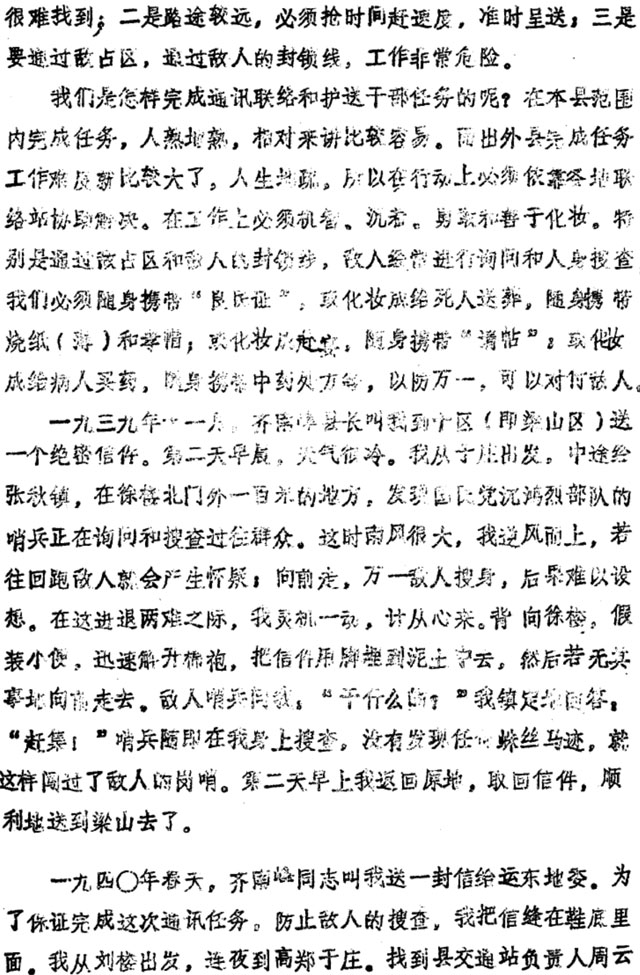 很难找到；二是路途较远，必须抢时间赶速度，准时呈送；三是
要通过敌占区，通过敌人的封锁线，工作非常危险。
我们是怎样完成通讯联络和护送干部任务的呢？在本县范围
内完成任务，人熟地熟，相对来讲比较容易。而出外县完成任务
工作难度就比较大了，人生地疏，所以在行动上必须依靠各地联
络站协助解决。在工作上必须机智、沉着、勇敢和善于化妆。特
别是通过敌占区和敌人的封锁线，敌人经常进行询问和人身搜查
我们必须随身携带“良民证”，或化妆成给死人送葬，随身携带
烧纸（薄）和孝帽；或化妆成赶会，随身携带“请帖”；或化妆
成给病人买药，随身携带中药处方等，以防万一，可以对付敌人。
一九三九年十一月，齐南峰县长叫我到十区（即梁山区）送
一个绝密信件。第二天早晨，天气很冷。我从于庄出发，中途经
张秋镇，在徐楼北门外一百米的地方，发现国民党沉鸿烈部队的
哨兵正在询问和搜查过往群众。这时南风很大，我逆风而上，若
往回跑敌人就会产生怀疑；向前走，万一敌人搜身，后果难以设
想。在这进退两难之际，我灵机一动，计从心来。背向徐楼，假
装小便，迅速解开棉袍，把信件用脚踵到泥土中去，然后若无其
事地向前走去。敌人哨兵问我：“干什么的？”我镇定地回答：
“赶集！”哨兵随即在我身上搜查，没有发现任何蛛丝马迹，就
这样闯过了敌人的岗哨。第二天早上我返回原地，取回信件，顺
利地送到梁山去了。
一九四〇年春天，齐南峰同志叫我送一封信给运东地委。为
了保证完成这次通讯任务。防止敌人的搜查，我把信缝在鞋底里
面。我从刘楼出发，连夜到高郑于庄。找到县交通站负责人周云